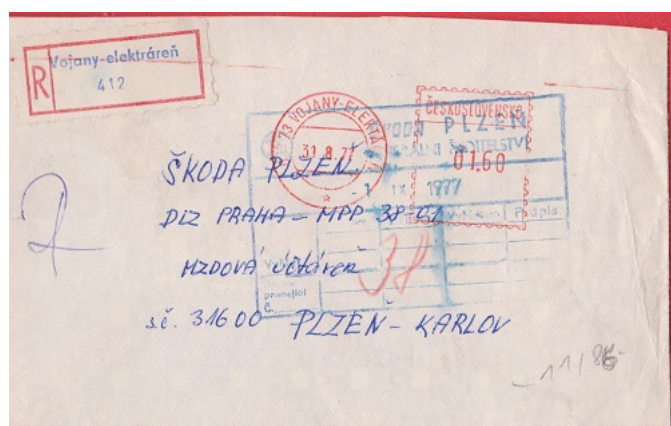 R
Vojany-elektráreň
412
73 VOJANY-ELEKTR
31.8.77
ČESKOSLOVENSKO
01.60
PLZEŇ
ŘEDITELSTVÍ
-1 IX 1977
Podpis
38
prodejní
Č.
ŠKODA PLZEŇ
DIZ PRAHA - MPP 38-01
MZDOVÁ účtáreň
s.č. 31600 PLZEŇ - KARLOV